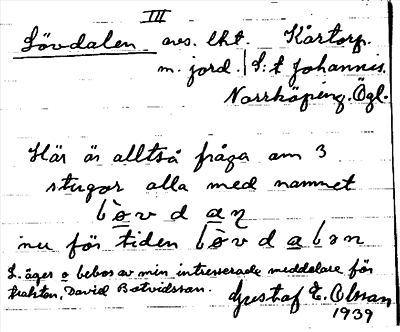 III
Lövdalen avs. lht. Kårtorp.
m. jord. / S:t Johannis.
Norrköping. Ögl.
Här är alltså fråga om 3
stugor alla med namnet
lòvdaņ
nu för tiden lòvdalən
L. äger o bebos av min intresserade meddelare för
trakten, David Botvidsson.
Gustaf E. Olsson
1939